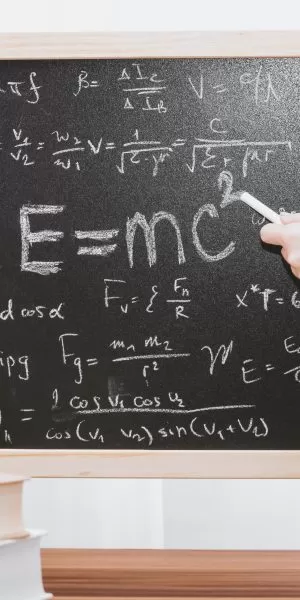 πf β = ΔI_C / ΔI_B V =
V₁/V₂ = W₂/W₁ V = 1/√(ε·μ) = C/√(ε_r μ_r)
E=mc²
d cos α F_v = { F_n/R
F_g = m₁ m₂ / r² E =
= 1 cos v₁ cos v₂ / cos(v₁ v₂) sin(v₁+v₂)